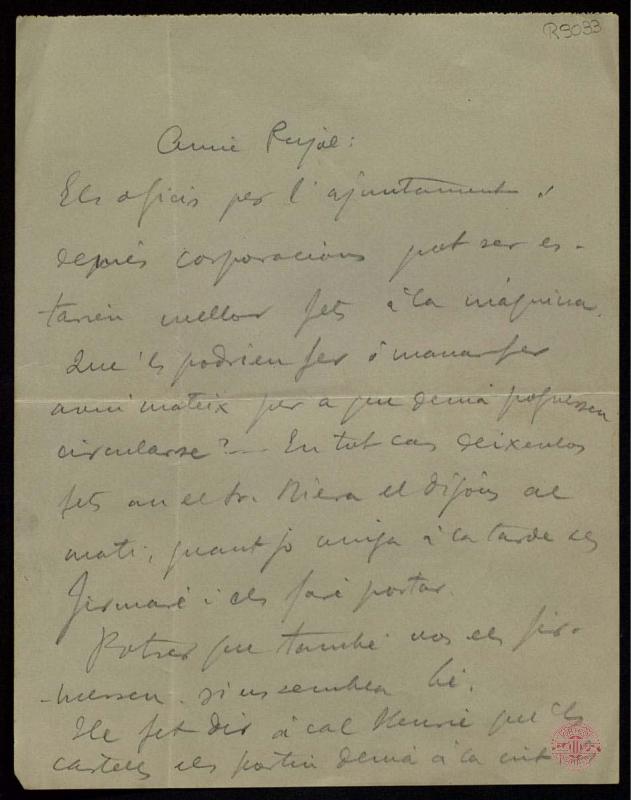 R9033
Amic Pujol:
Els oficis per l'ajuntament i
demés corporacions pot ser es-
tarien mellor fets á la máquina.
Que 'ls podrien fer ó manar fer
avui mateix per a que demá poguessen
circularse? — En tot cas deixeulos
fets an el Sr. Riera el dijous al
matí, quant jo vinga á la tarde els
firmaré i els faré portar.
Potser que també vos els fir-
messen si us sembla bé.
He fet dir á cal Henric que 'ls
cartells els portin demá á la